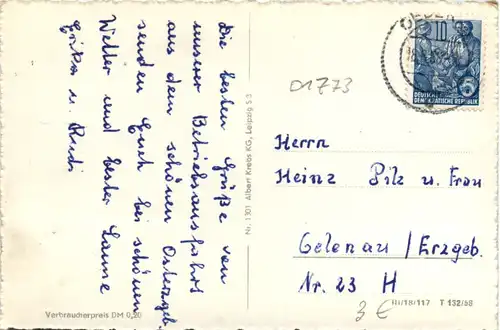 Die besten Grüße von
unserer Betriebsausfahrt
aus dem schönen Osterzgeb.
senden Euch bei schönen
Wetter und bester Laune
Erika u. Rudi
Verbraucherpreis DM 0,20
Nr. 1301 Albert Krebs KG, Leipzig S 3
01773
10
5
DEUTSCHE
DEMOKRATISCHE REPUBLIK
Herrn
Heinz Pilz u. Frau
Gelenau/Erzgeb.
Nr. 23 H
3€
III/18/117 T 132/58